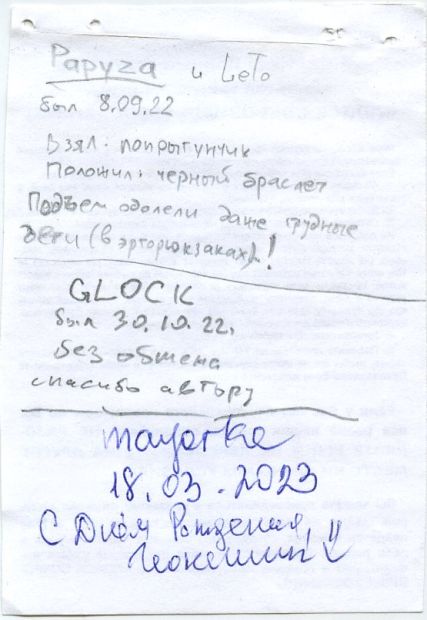 Papyza и LeTo
был 8.09.22
Взял: попрыгунчик
Положил: черный браслет
Подъем одолели даже грудные
дети (в эргорюкзаках)!
GLOCK
был 30.10.22.
без обмена
спасибо автору
mayorka
18.03.2023
С Днём Рождения
Геокешинг!!